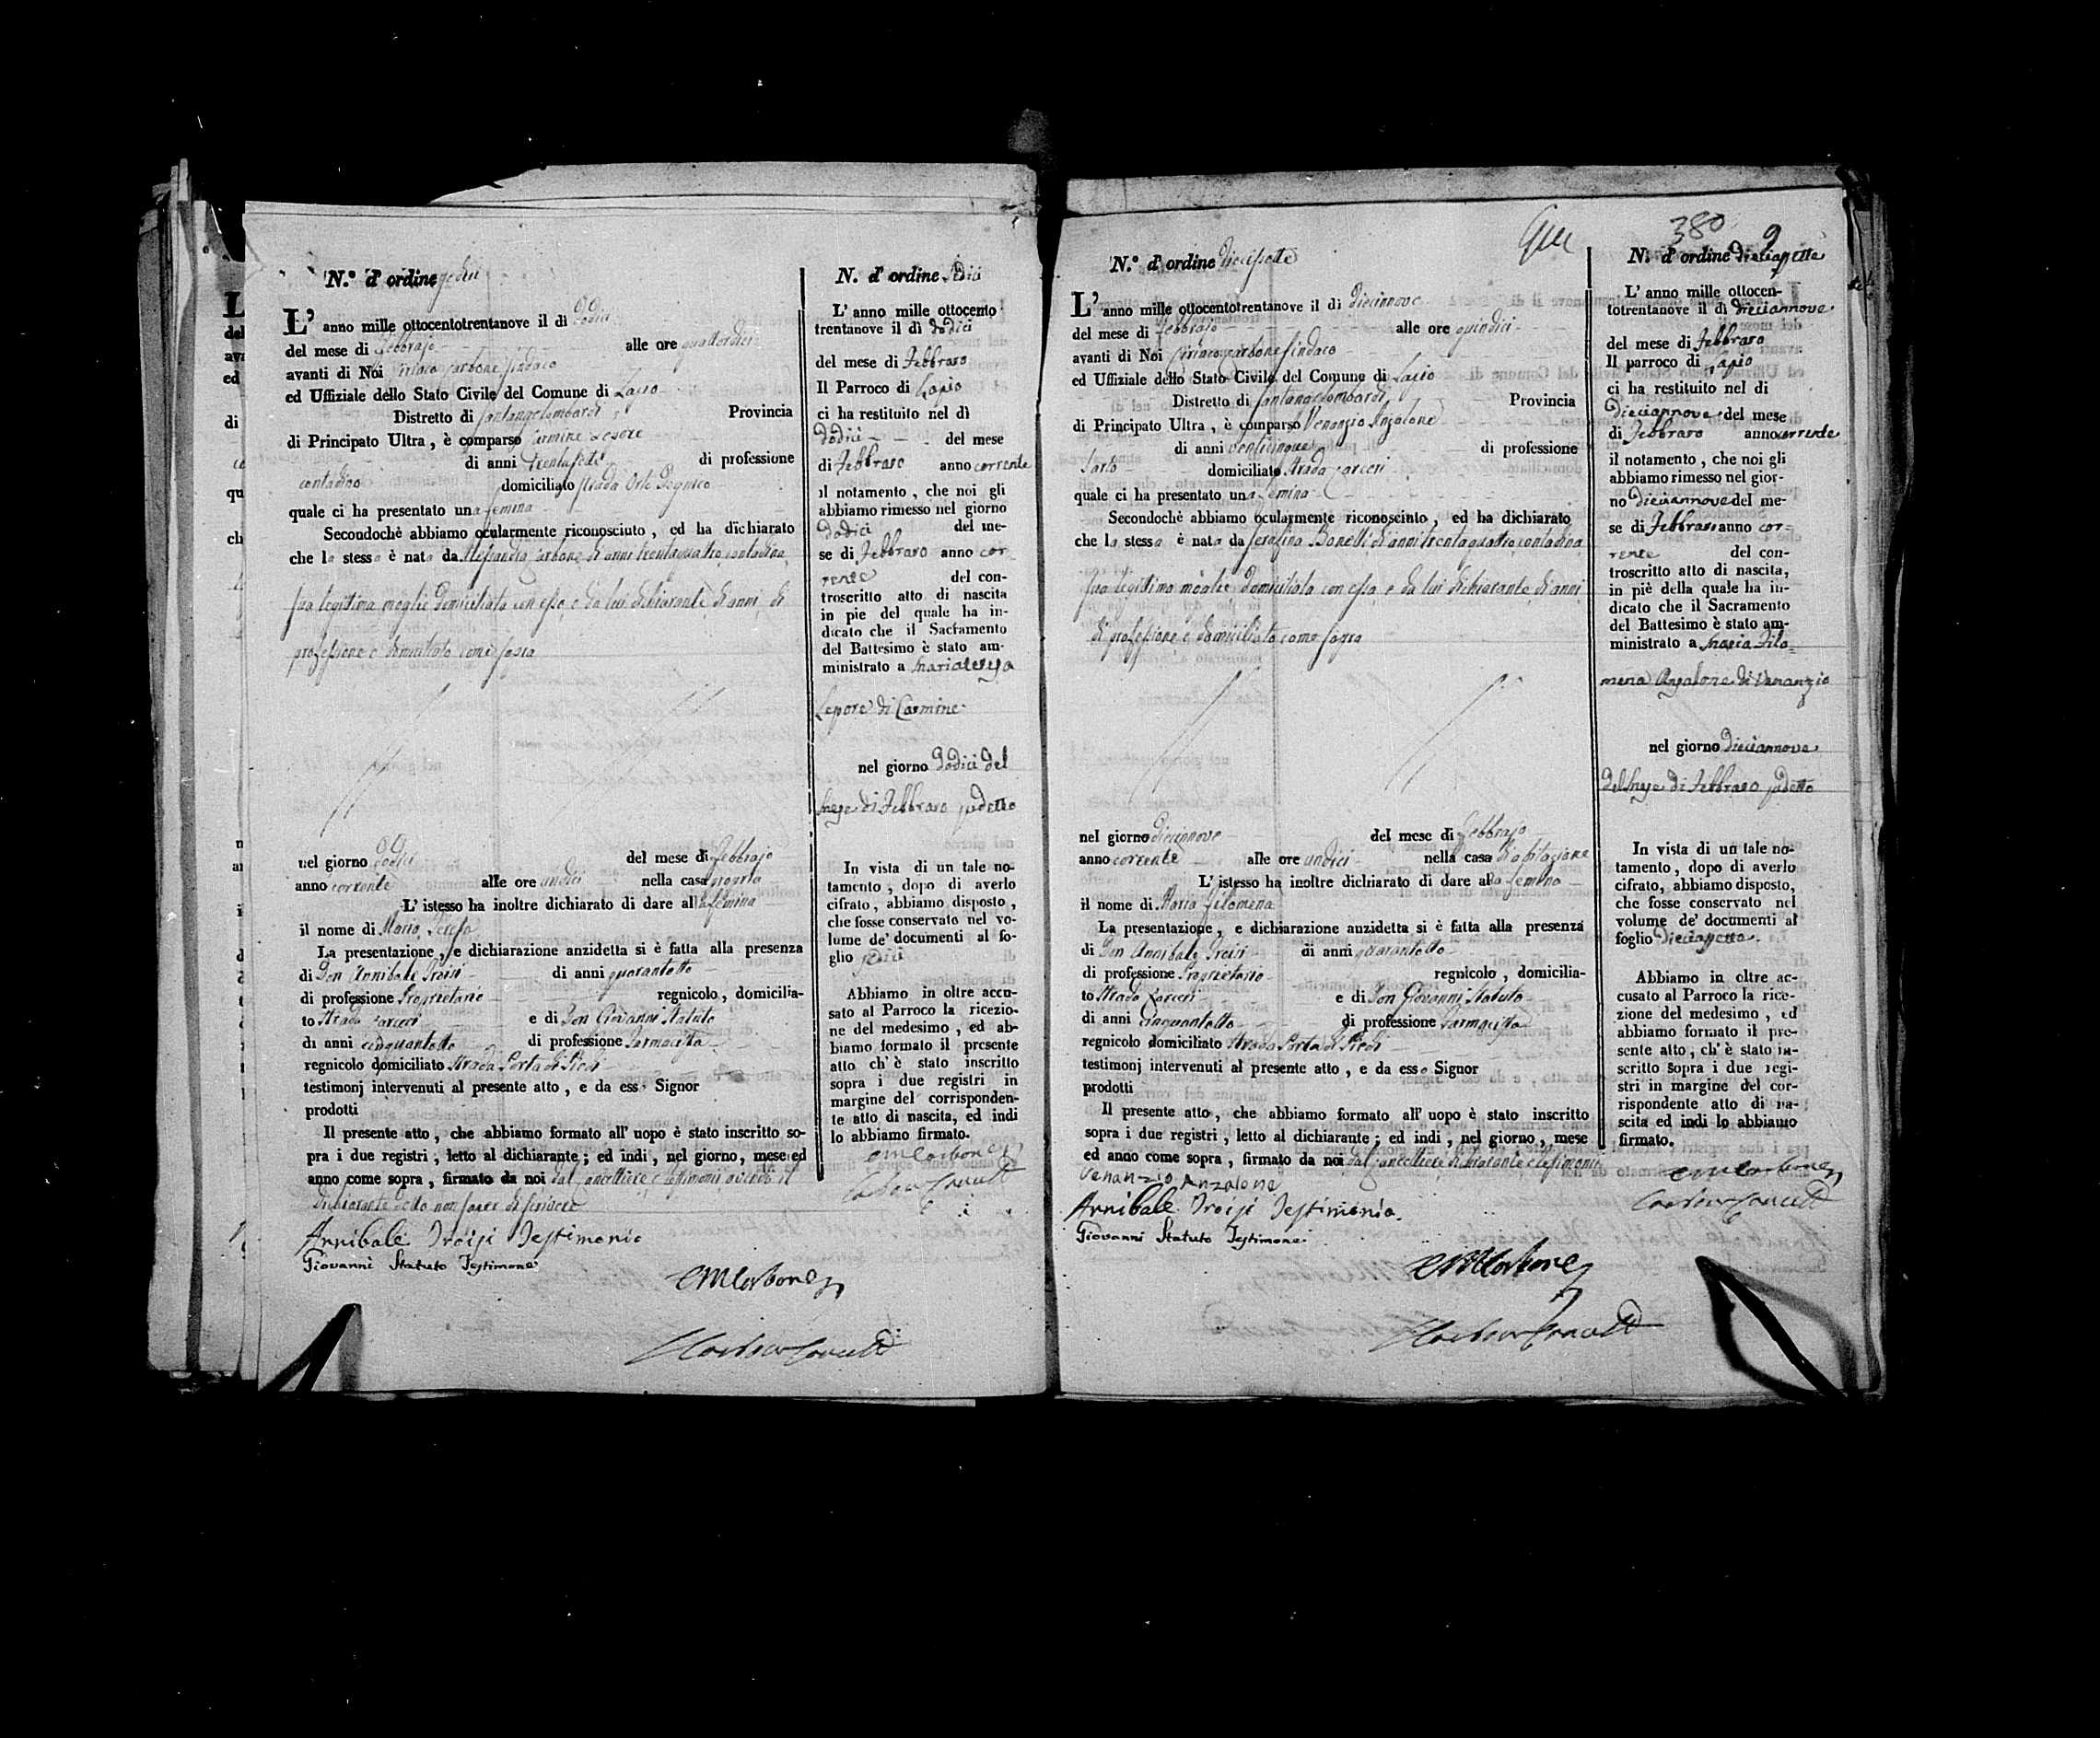 N.º d' ordine sedici
L' anno mille ottocentotrentanove il dì dodici
del mese di Febbrajo alle ore quattordici
avanti di Noi Ciriaco Carbone Sindaco
ed Uffiziale dello Stato Civile del Comune di Lapio
Distretto di Santangelombardi Provincia
di Principato Ultra, è comparso Carmine Lepore
di anni trentasette di professione
contadino domiciliato strada
quale ci ha presentato una femina
Secondochè abbiamo ocularmente riconosciuto, ed ha dichiarato
che la stessa è nata da Alessandra Carbone di anni trentaquattro contadina
sua legittima moglie domiciliata con esso e da lui dichiarante di anni di
professione e domiciliato come sopra
nel giorno dodici del mese di Febbrajo
anno corrente alle ore undici nella casa propria
L' istesso ha inoltre dichiarato di dare alla femina
il nome di Maria Teresa
La presentazione, e dichiarazione anzidetta si è fatta alla presenza
di Don Annibale Troisi di anni quarantotto
di professione Proprietario regnicolo, domicilia-
to Strada Carceri e di Don Giovanni Statuto
di anni cinquantotto di professione Farmacista
regnicolo domiciliato Strada Porta di Piedi
testimonj intervenuti al presente atto, e da esso Signor
prodotti
Il presente atto, che abbiamo formato all' uopo è stato inscritto so-
pra i due registri, letto al dichiarante; ed indi, nel giorno, mese ed
anno come sopra, firmato da noi dal Cancelliere e testimonii avendo il
dichiarante detto non saper di scrivere
Annibale Troisi Testimonio
Giovanni Statuto Testimone
CMCarbone
N. d' ordine sedici
L' anno mille ottocento
trentanove il dì dodici
del mese di Febbraro
Il Parroco di Lapio
ci ha restituito nel dì
dodici del mese
di Febbraro anno corrente
il notamento, che noi gli
abbiamo rimesso nel giorno
dodici del me-
se di Febbraro anno cor-
rente del con-
troscritto atto di nascita
in pie del quale ha in-
dicato che il Sacramento
del Battesimo è stato am-
ministrato a Mariateresa
Lepore di Carmine
nel giorno dodici del
mese di Febbraro sudetto
In vista di un tale no-
tamento, dopo di averlo
cifrato, abbiamo disposto,
che fosse conservato nel vo-
lume de' documenti al fo-
glio sedici
Abbiamo in oltre accu-
sato al Parroco la ricezio-
ne del medesimo, ed ab-
biamo formato il presente
atto ch' è stato inscritto
sopra i due registri in
margine del corrisponden-
te atto di nascita, ed indi
lo abbiamo firmato.
CMCarbone
380 9
N.º d' ordine diecisette
L' anno mille ottocentotrentanove il dì diecinnove
del mese di Febbrajo alle ore quindici
avanti di Noi Ciriaco Carbone Sindaco
ed Uffiziale dello Stato Civile del Comune di Lapio
Distretto di Santangelombardi Provincia
di Principato Ultra, è comparso Venanzio Anzalone
di anni venticinque di professione
Sarto domiciliato Strada Carceri
quale ci ha presentato una femina
Secondochè abbiamo ocularmente riconosciuto, ed ha dichiarato
che la stessa è nata da Serafina Bonelli di anni trentaquattro contadina
sua legittima moglie domiciliata con esso e da lui dichiarante di anni
di professione e domiciliato come sopra
nel giorno diecinnove del mese di Febbrajo
anno corrente alle ore undici nella casa di abitazione
L' istesso ha inoltre dichiarato di dare alla femina
il nome di Maria Filomena
La presentazione, e dichiarazione anzidetta si è fatta alla presenza
di Don Annibale Troisi di anni quarantotto
di professione Proprietario regnicolo, domicilia-
to Strada Carceri e di Don Giovanni Statuto
di anni cinquantotto di professione Farmacista
regnicolo domiciliato Strada Porta di Piedi
testimonj intervenuti al presente atto, e da esso Signor
prodotti
Il presente atto, che abbiamo formato all' uopo è stato inscritto
sopra i due registri, letto al dichiarante; ed indi, nel giorno, mese
ed anno come sopra, firmato da noi dal Cancelliere dichiarante e testimonii
Venanzio Anzalone
Annibale Troisi Testimonio.
Giovanni Statuto Testimone
CMCarbone
N. d' ordine Dieciassette
L' anno mille ottocen-
totrentanove il dì dieciannove
del mese di Febbraro
Il parroco di Lapio
ci ha restituito nel dì
Dieciannove del mese
di Febbraro anno corrente
il notamento, che noi gli
abbiamo rimesso nel gior-
no Dieciannove del me-
se di Febbraro anno cor-
rente del con-
troscritto atto di nascita,
in piè della quale ha in-
dicato che il Sacramento
del Battesimo è stato am-
ministrato a Maria Filo-
mena Anzalone di Venanzio
nel giorno Dieciannove
del mese di Febbraro sudetto
In vista di un tale no-
tamento, dopo di averlo
cifrato, abbiamo disposto,
che fosse conservato nel
volume de' documenti al
foglio Dieciassette.
Abbiamo in oltre ac-
cusato al Parroco la rice-
zione del medesimo, ed
abbiamo formato il pre-
sente atto, ch' è stato in-
scritto sopra i due regi-
stri in margine del cor-
rispondente atto di na-
scita ed indi lo abbiamo
firmato.
CMCarbone